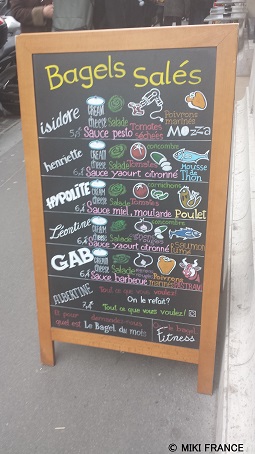 Bagels Salés
isidore
CREAM cheese Salade Tomates séchées Poivrons marinés Mozza
Sauce pesto
henriette
CREAM cheese Salade Tomates concombre Mousse de Thon
Sauce yaourt citronné
HIPPOLYTE
CREAM cheese Salade Tomates cornichons Poulet
Sauce miel, moutarde
Léontine
CREAM cheese Salade Saumon fumé
Sauce yaourt citronné
GAB
CREAM cheese Salade oignons Poivrons marinés
Sauce barbecue
ALBERTINE
Tout ce que vous voulez!
On le refait?
Tout ce que vous voulez!
Et pour demandez-nous
quel est Le Bagel du mois
le bagel
Fitness
© MIKI FRANCE